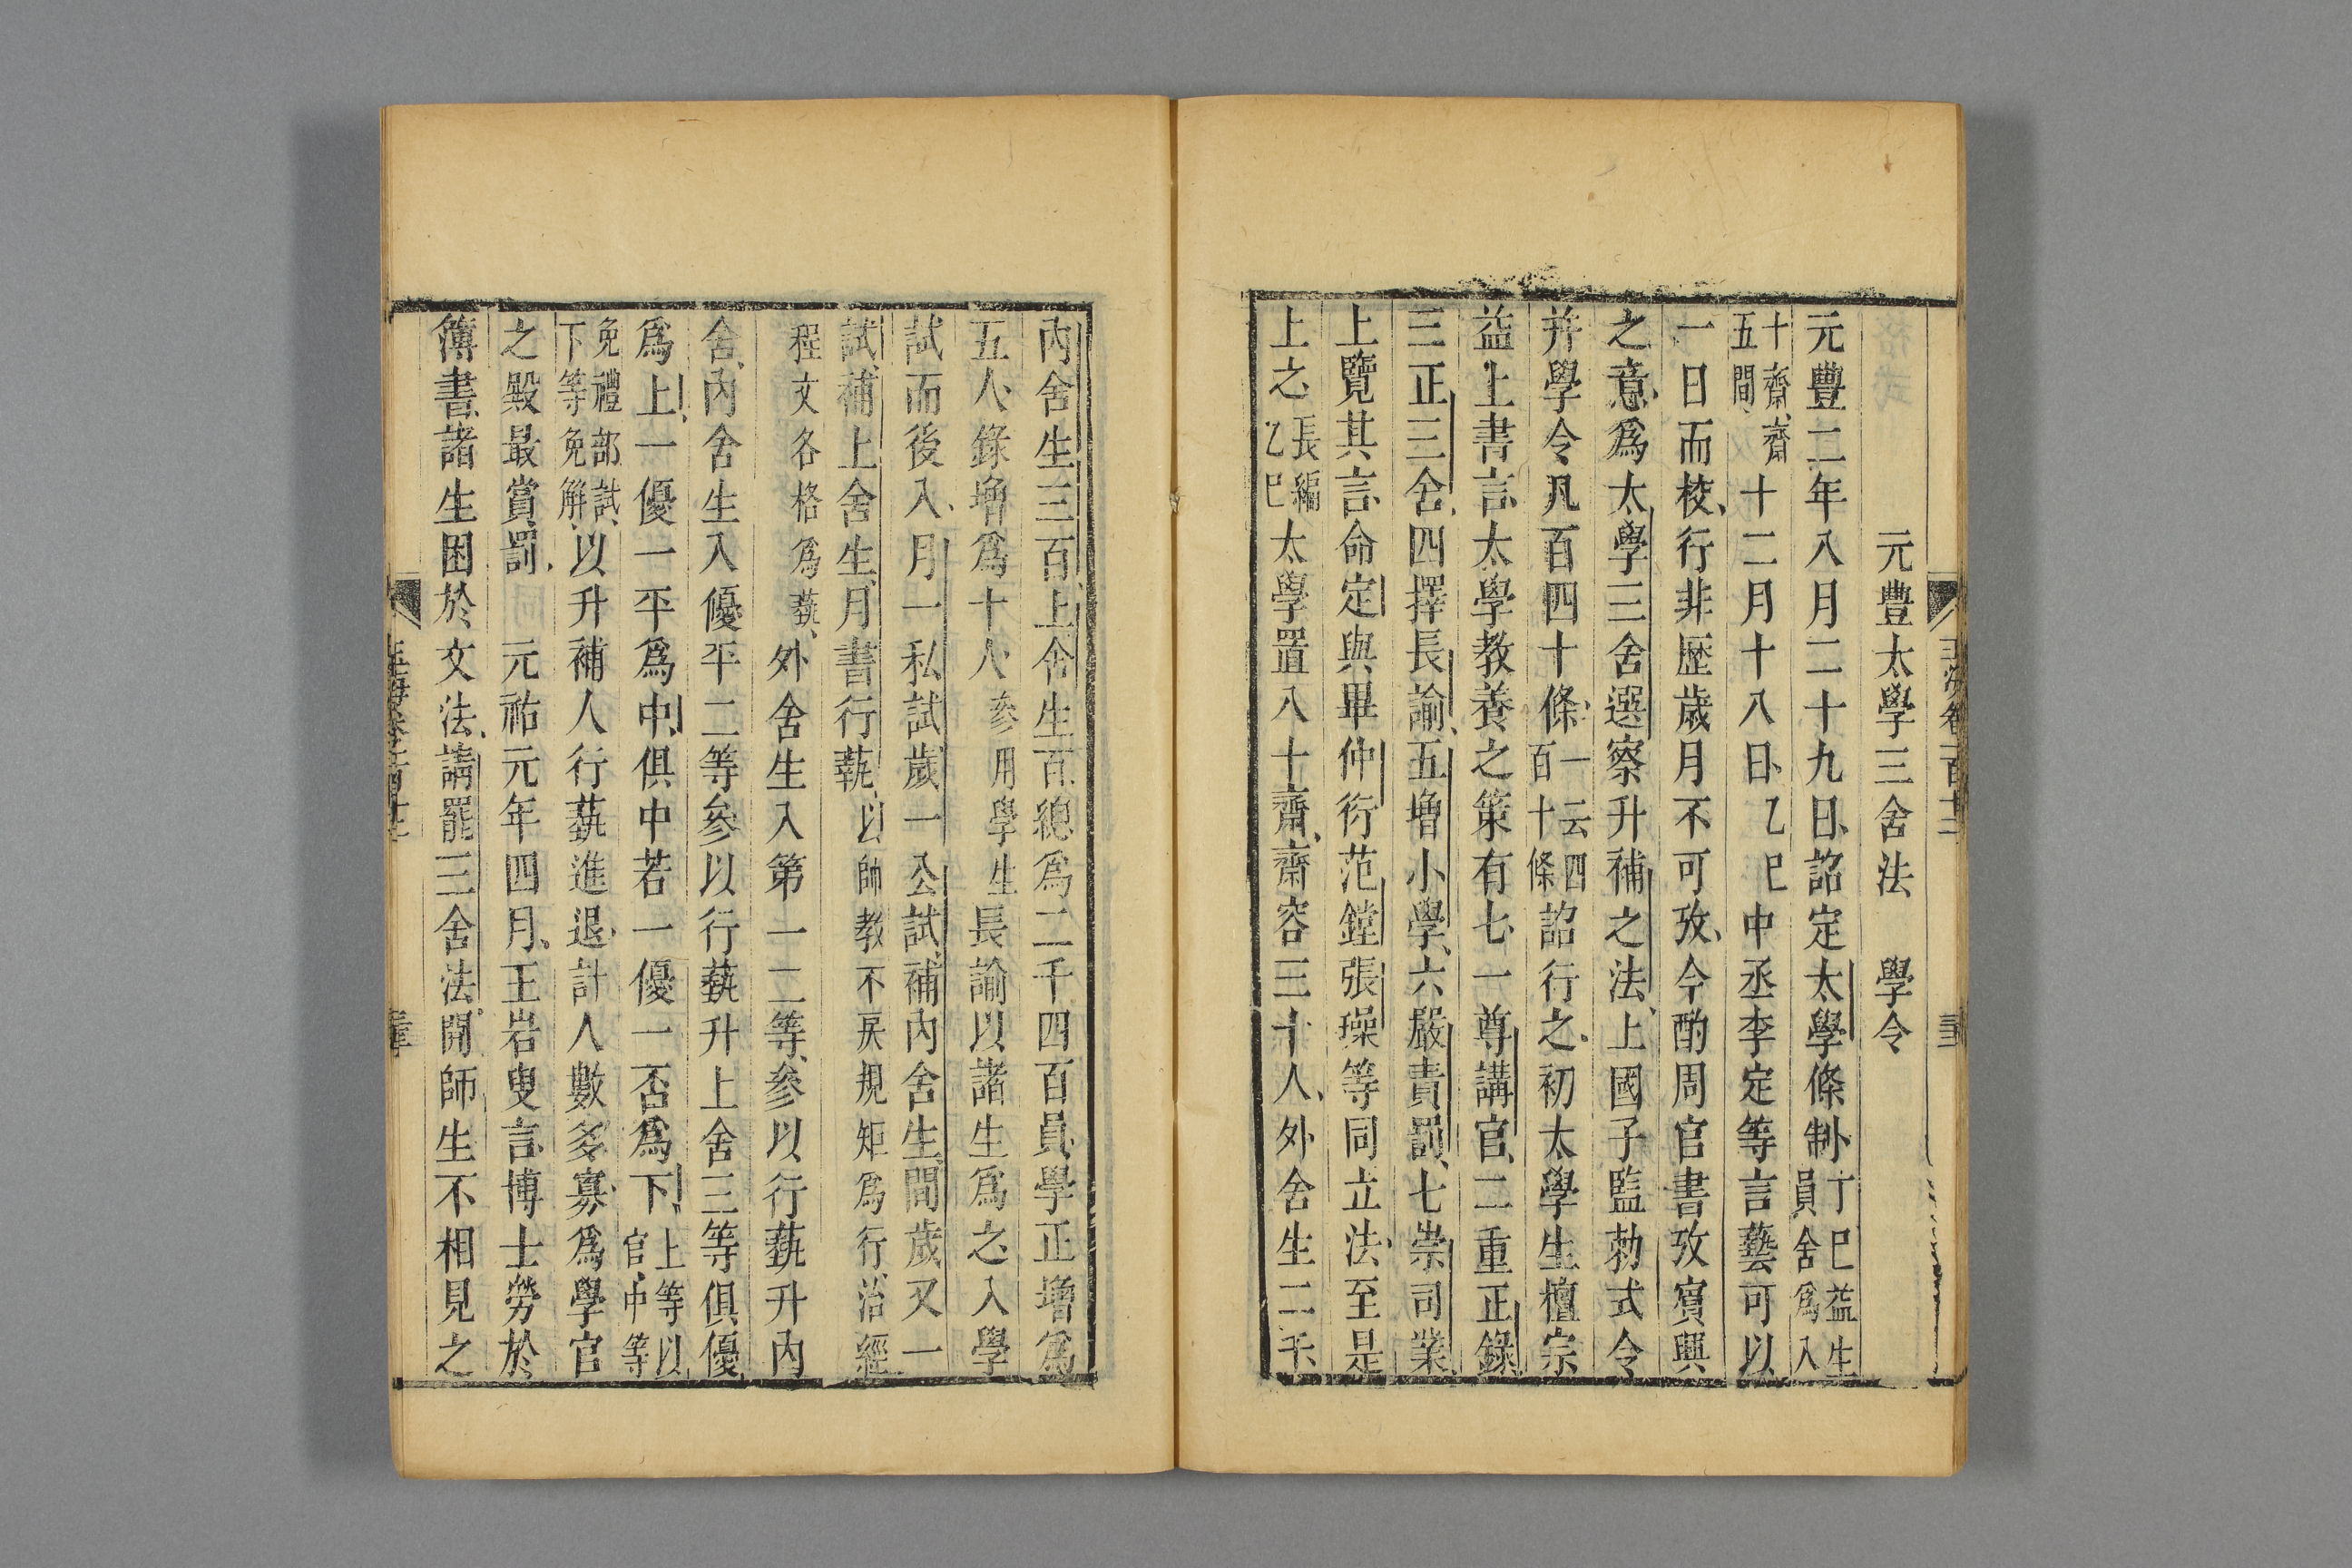 元豐太學三舍法　學令
元豐二年八月二十九日詔定太學條制丁巳益生員舍爲八
十齋齋五間十二月十八日乙巳中丞李定等言藝可以
一日而校行非歷歲月不可攷今酌周官書攷賓興
之意爲太學三舍選察升補之法上國子監勑式令
并學令凡百四十條一云四百十條詔行之初太學生檀宗
益上書言太學教養之策有七一尊講官二重正錄
三正三舍四擇長諭五增小學六嚴責罰七崇司業
上覽其言命定與畢仲衍范鏜張璪等同立法至是
上之長編乙巳太學置八十齋齋容三十人外舍生二千
內舍生三百上舍生百總爲二千四百員學正增爲
五人錄增爲十人參用學生長諭以諸生爲之入學
試而後入月一私試歲一公試補內舍生間歲又一
試補上舍生月書行藝以師教不戾規矩爲行治經
程文各格爲藝外舍生入第一二等參以行藝升內
舍內舍生入優平二等參以行藝升上舍三等俱優
爲上一優一平爲中俱中若一優一否爲下上等以官中等
免禮部試下等免解以升補人行藝進退計人數多寡爲學官
之殿最賞罰　元祐元年四月王岩叟言博士勞於
簿書諸生困於文法請罷三舍法開師生不相見之